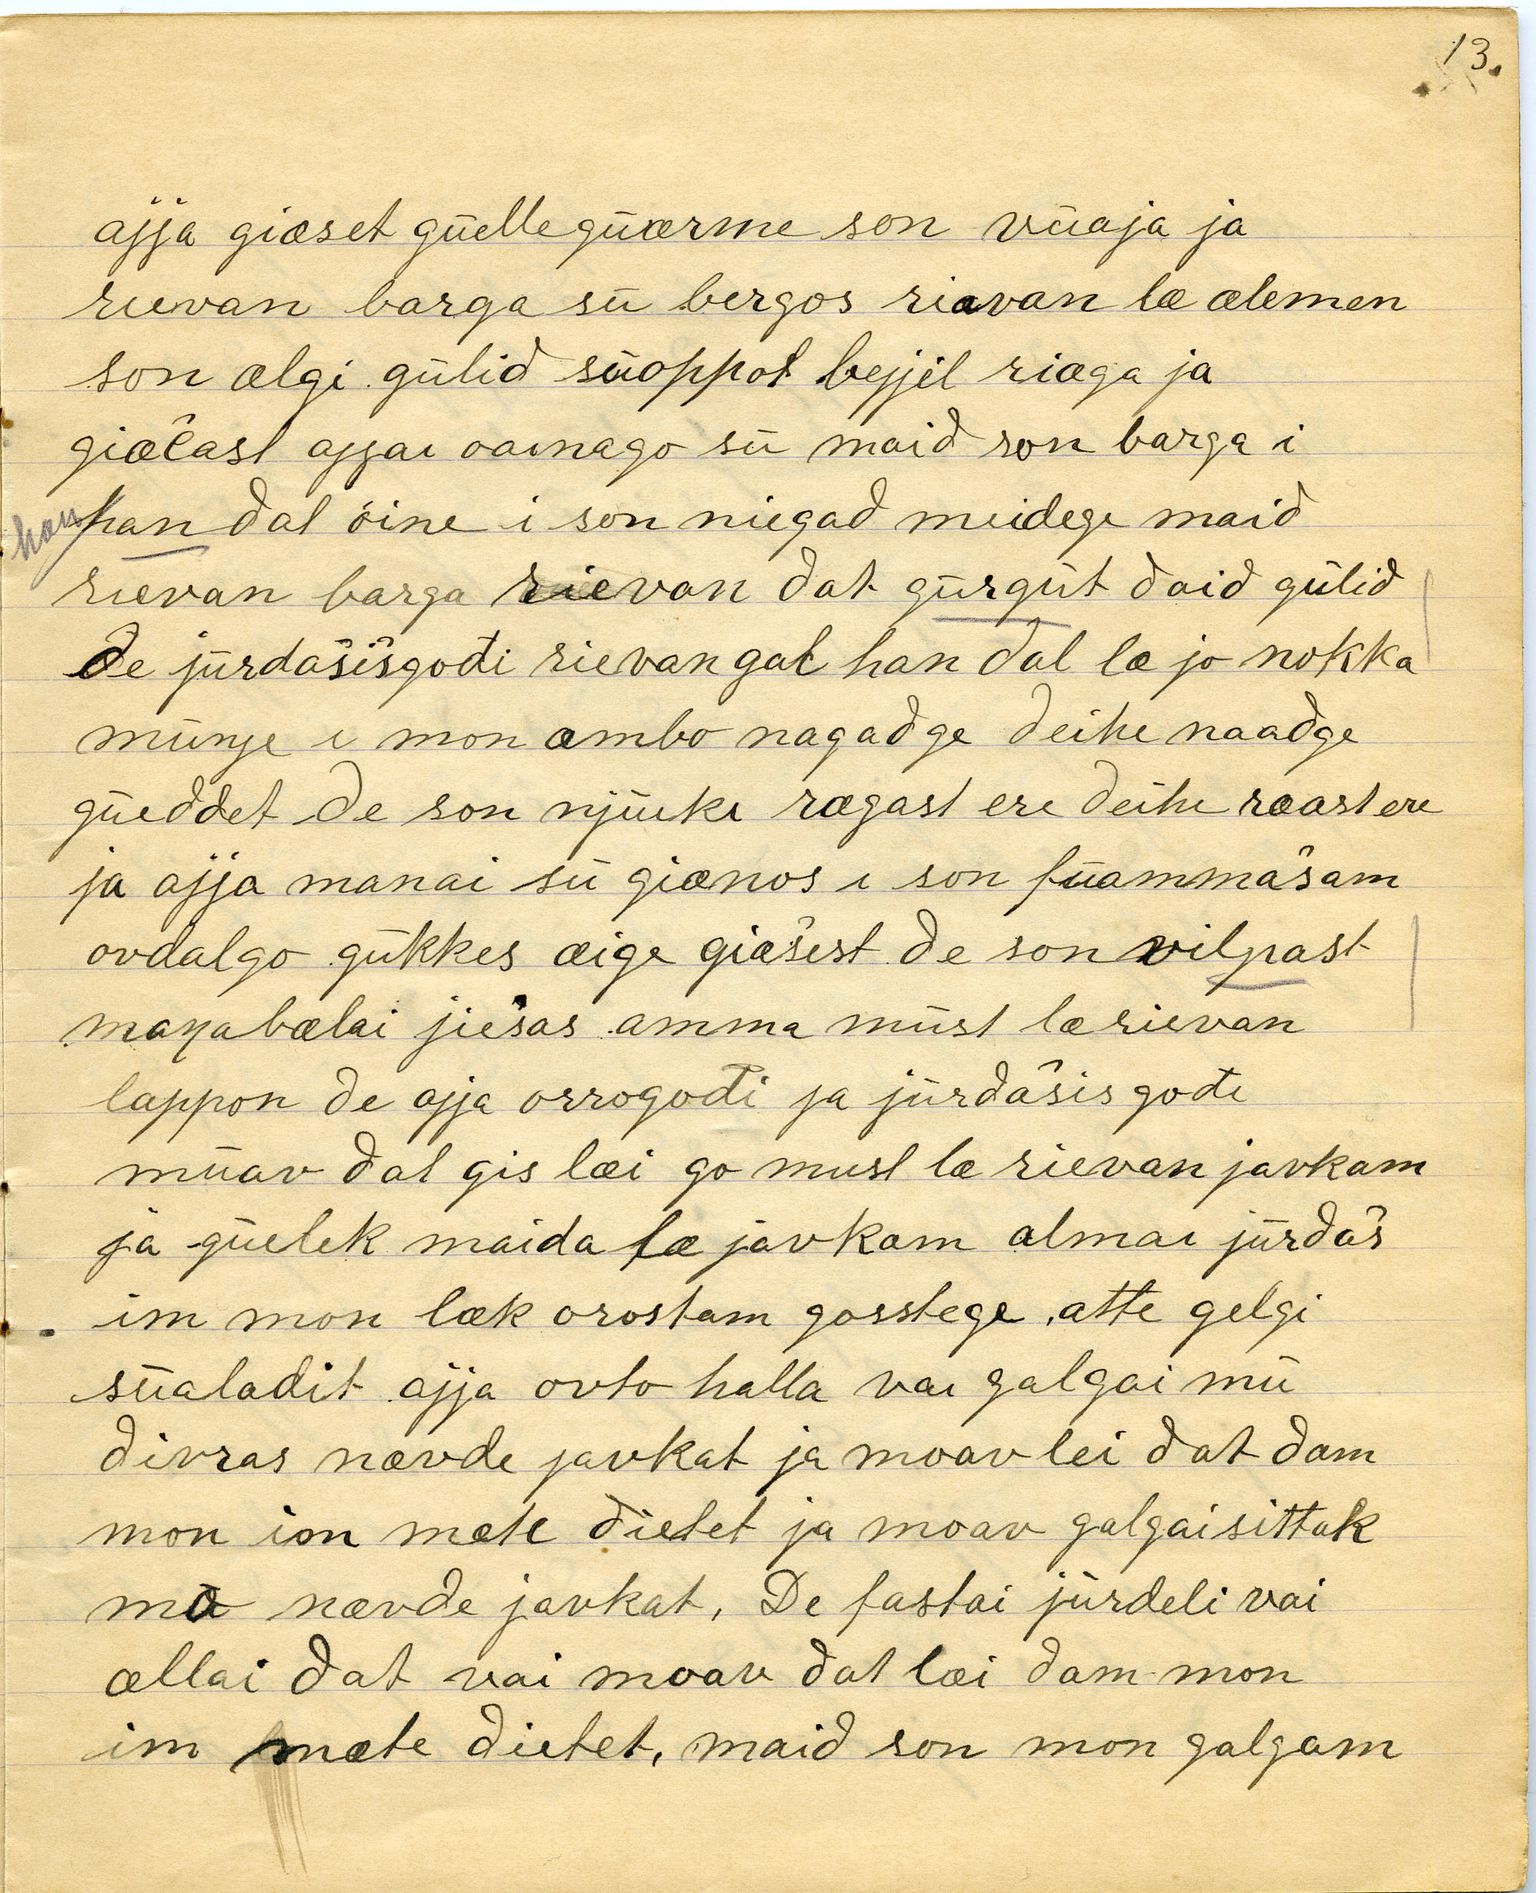 13.
ajja giæset güelle güærme son vüaja ja
rievan barga sü bergos riavan læ ælemen
son ælgi gülid süoppot bejjil riæga ja
giæčast ajjai oainago sü maid son barga i
han han dal öine i son niegad meidege maid
rievan barga rievan dat gürgüt daid gülid
de jürdašišgođi rievan gal han dal læ jo nokka
münje i mon æmbo nagadge deihe naadge
güeddet de son njuike rægast ere deihe ræast ere
ja ajja manai sü giænos i son füammašam
ovdalgo gükkes æige giæšest de son vilpast
maŋabælai jiešas amma müst læ rievan
lappon de ajja orrogođi ja jürdašisgođi
müav dat gis læi go must læ rievan javkam
ja güelek maida læ javkam almai jürdaš
im mon læk orostam gosstege, atte gelgi
süaladit ajja ovto halla vai galgai mü
divras nævde javkat ja moav lei dat dam
mon im mæte dietet ja moav galgaisittak
mü nævde javkat, De fastai jürdeli vai
ællai dat vai moav dat læi dam mon
im mæte dietet, maid son mon galgam